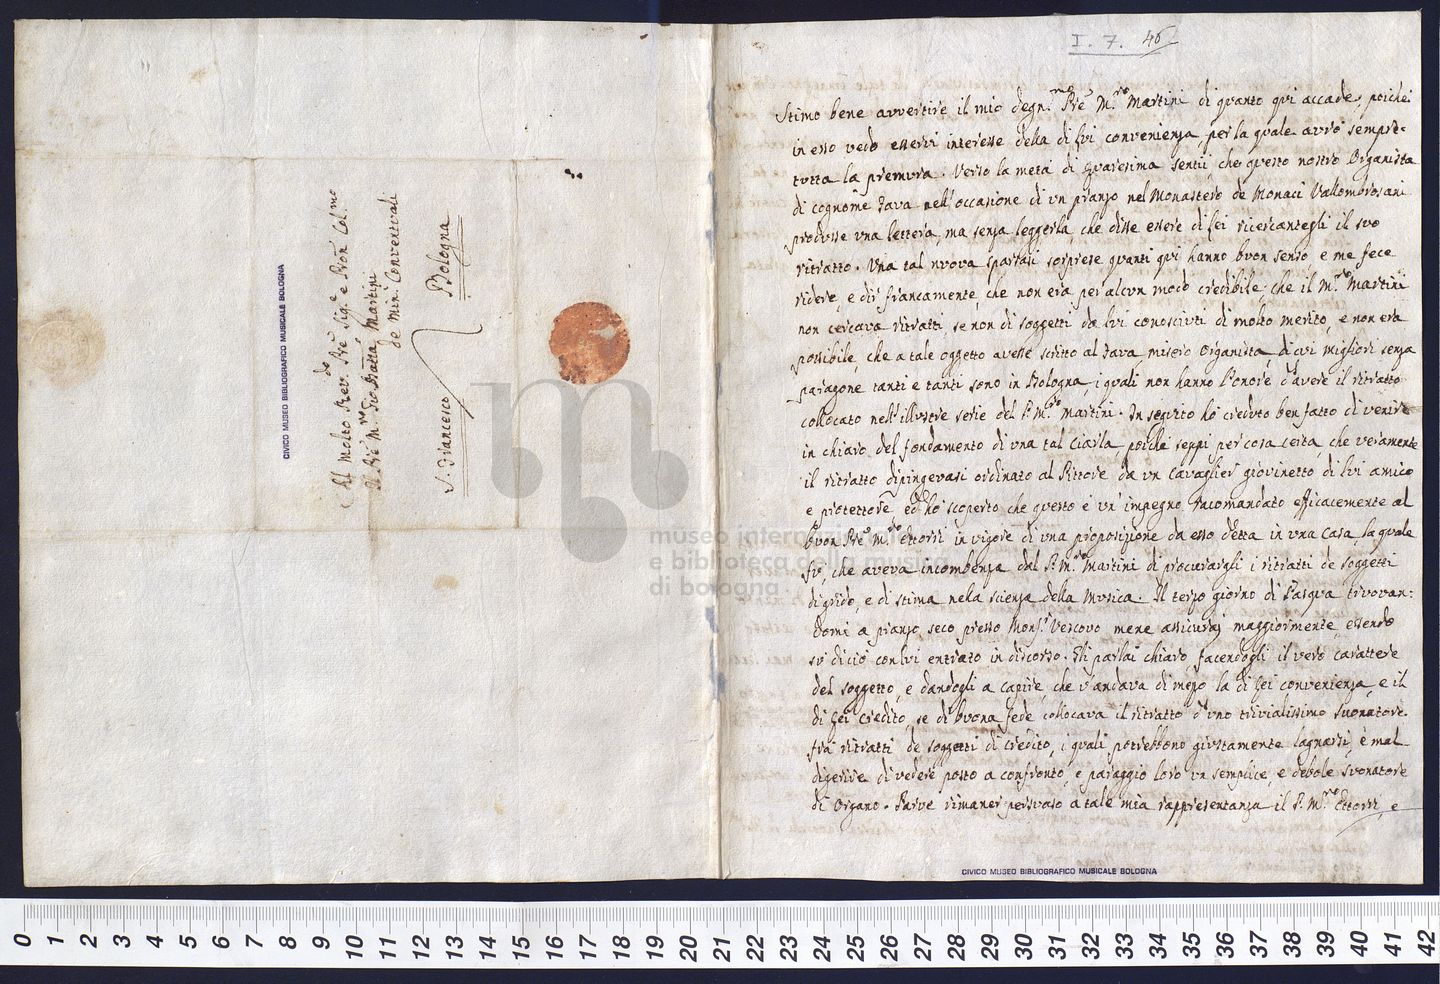 Al Molto Rev.do Pře Sig.e e Pron Col.mo
Il Pře M.ro Gio Batta Martini
de Min: Conventuali
S. Francesco
Bologna
CIVICO MUSEO BIBLIOGRAFICO MUSICALE BOLOGNA
I. 7. 46
Stimo bene avvertire il mio degn.mo Pře M.ro Martini di quanto qui accade, poichè
in esso vedo esservi interesse della di lui convenienza, per la quale avrò sempre
tutta la premura. Verso la metà di Quaresima sentii, che questo nostro Organista
di cognome Fava nell'occasione di un pranzo nel Monastero de Monaci Vallombrosani
produsse una lettera, ma senza leggerla, che disse essere di Lei ricercantegli il suo
ritratto. Una tal nuova spartasi sorprese quanti qui hanno buon senso e me fece
ridere, e dir francamente, che non era per alcun modo credibile che il M.ro Martini
non cercava ritratti, se non di soggetti da lui conosciuti di molto merito, e non era
possibile, che a tale oggetto avesse scritto al Fava misero Organista, di cui migliori senza
paragone tanti e tanti sono in Bologna, i quali non hanno l'onore d'avere il ritratto
collocato nell'illustre serie del P. M.ro Martini. In seguito ho creduto ben fatto di venire
in chiaro del fondamento di una tal ciarla, poichè seppi per cosa certa, che veramente
il ritratto dipingevasi ordinato al Pittore da un Cavaglier giovinetto di lui amico
e protettore, ed ho scoperto che questo è un' impegno racomandato efficacemente al
buon Pře M.ro Ettorri in vigore di una proposizione da esso detta in una Casa, la quale
fu, che aveva incombenza dal P. M.ro Martini di procurargli i ritratti de soggetti
di grido, e di stima nela scienza della Musica. Il terzo giorno di Pasqua trovan:
domi a pranzo seco presso Mons.r Vescovo mene assicurai maggiormente, essendo
sù di ciò con lui entrato in discorso. Gli parlai chiaro, facendogli il vero carattere
del soggetto, e dandogli a capire, che v'andava di mezzo la di Lei convenienza, e il
di Lei credito, se di buona fede collocava il ritratto d'uno trivialissimo suonatore
frà ritratti de soggetti di credito, i quali potrebbono giustamente lagnarsi, e mal
digerire di vedere posto a confronto, e paraggio loro un semplice, e debole suonatore
di Organo. Parve rimaner persuaso a tale mia rappresentanza il P. M.ro Ettorri, e
CIVICO MUSEO BIBLIOGRAFICO MUSICALE BOLOGNA
museo internazionale
e biblioteca della musica
di bologna
0 1 2 3 4 5 6 7 8 9 10 11 12 13 14 15 16 17 18 19 20 21 22 23 24 25 26 27 28 29 30 31 32 33 34 35 36 37 38 39 40 41 42